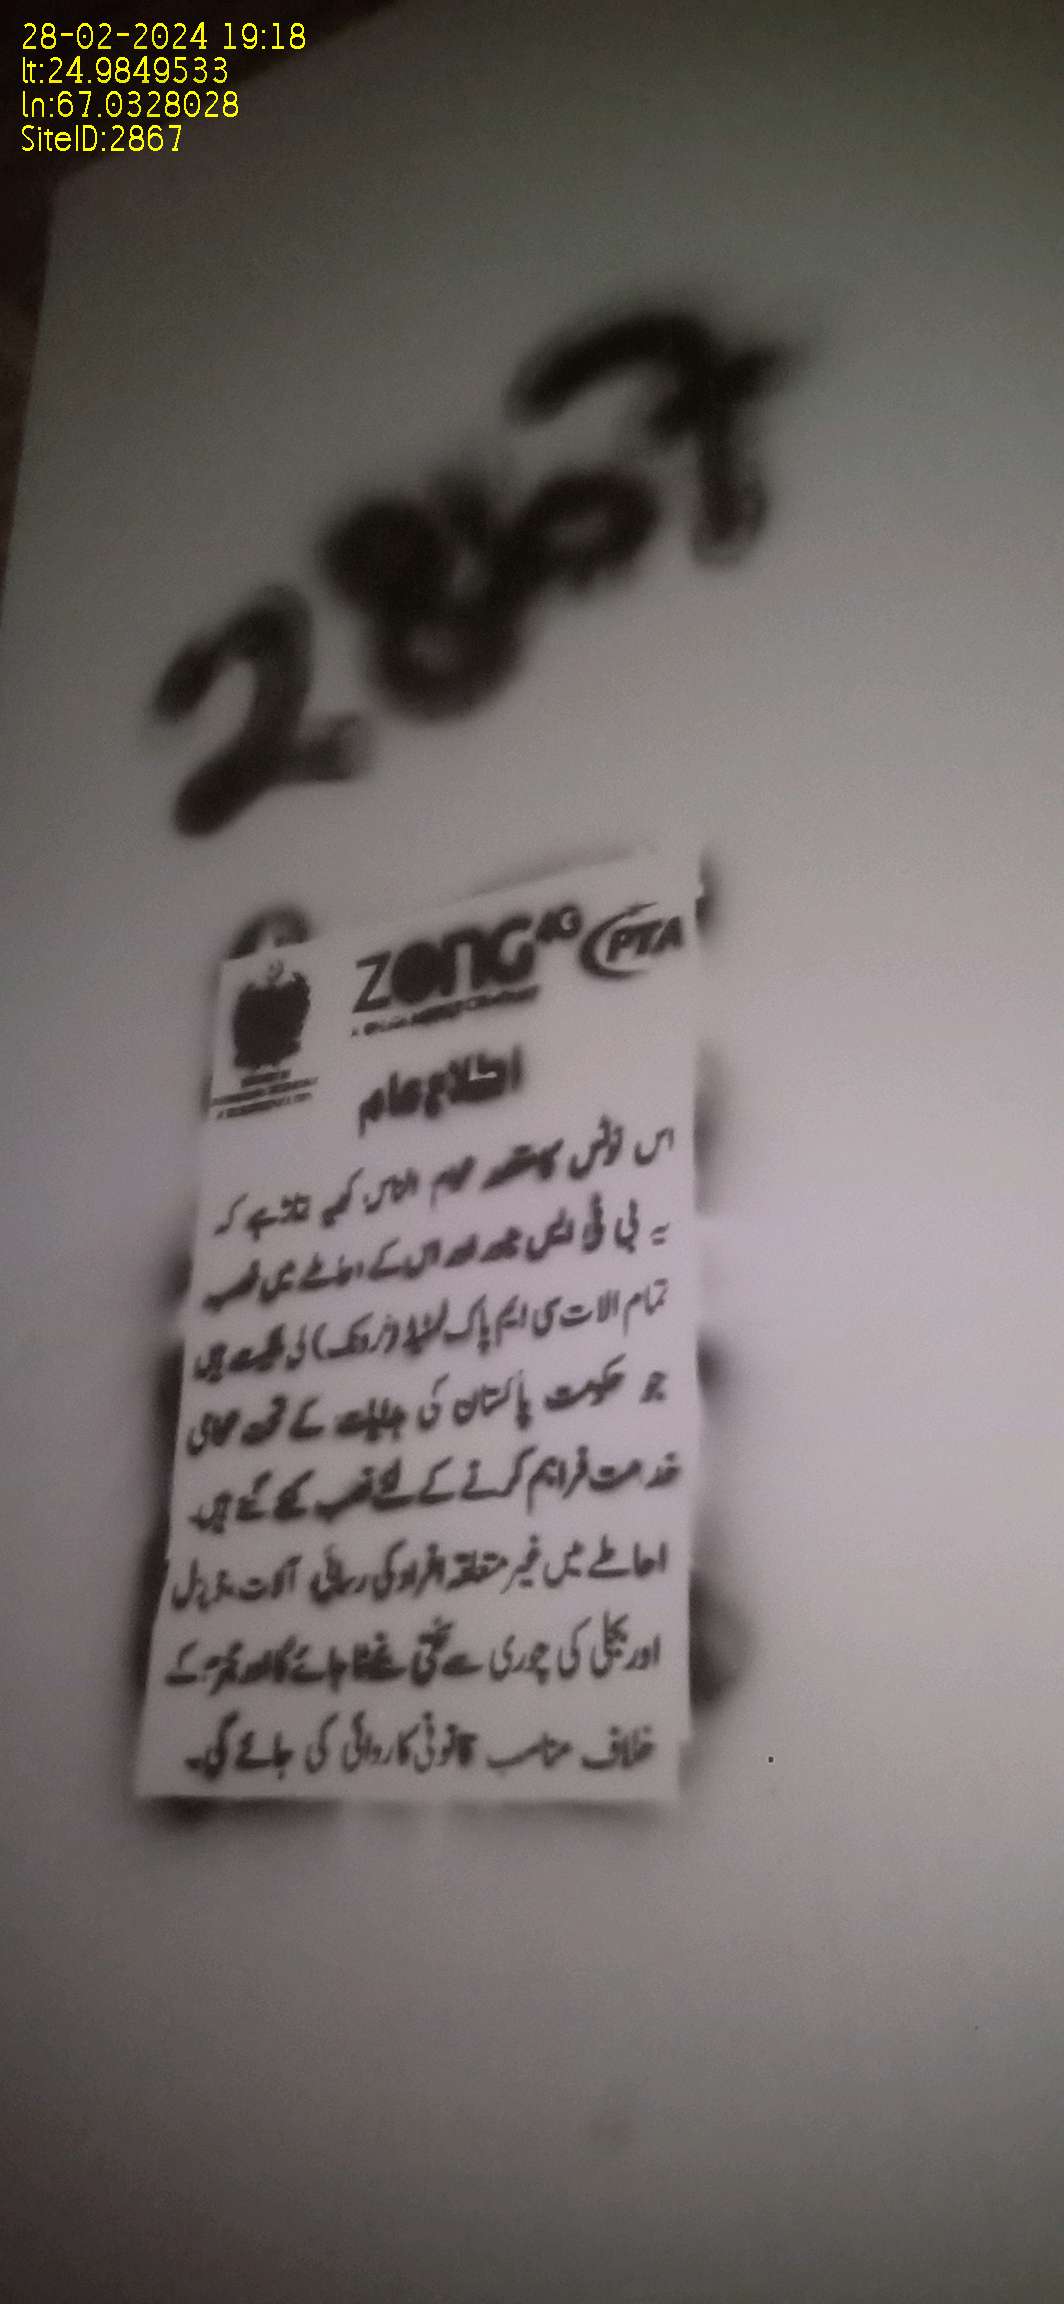 28-02-2024 19:18
lt:24.9849533
ln:67.0328028
SiteID:2867
2867
ZONG 4G
PTA
اطلاع عام
اس نوٹس کا مقصد عوام الناس کو یہ بتانا ہے کہ
یہ بی ٹی ایس اور اس کے احاطے میں نصب
تمام الات سی ایم پاک لمیٹڈ (زونگ) کی ملکیت ہیں
جو حکومت پاکستان کی ہدایات کے تحت عوامی
خدمت فراہم کرنے کے لئے نصب کئے گئے ہیں۔
احاطے میں غیر متعلقہ افراد کی رسائی آلات،
اور بجلی کی چوری سے سختی سے نمٹا جائے گا اور مجرم کے
خلاف مناسب قانونی کاروائی کی جائے گی۔